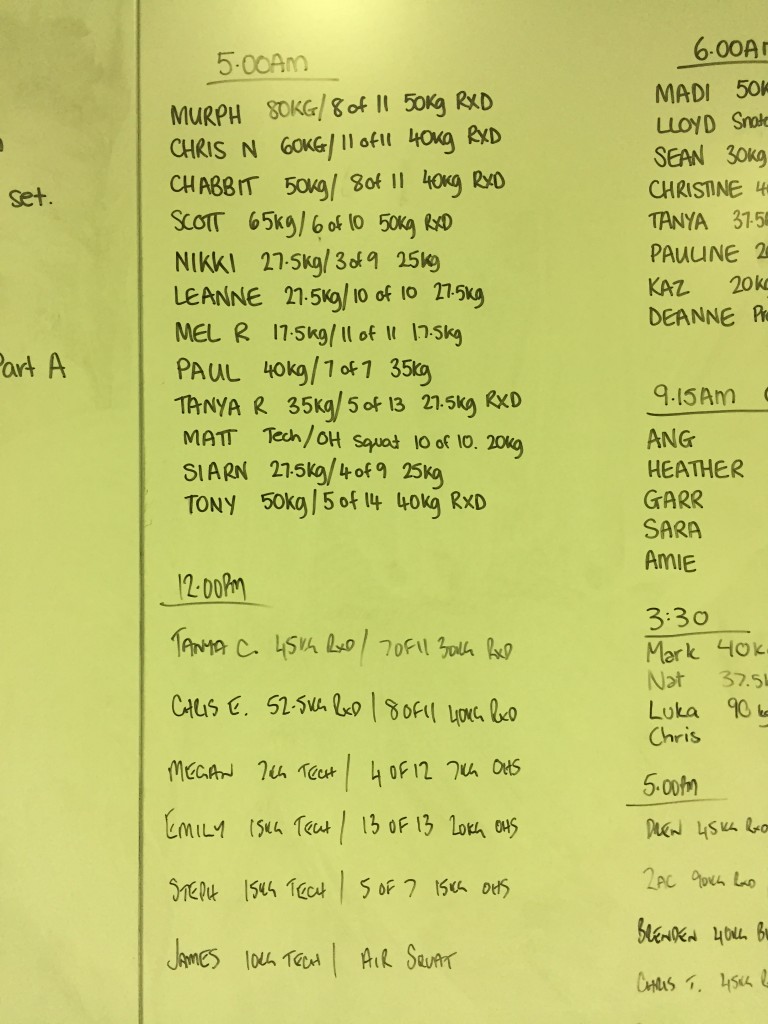 set.
Part A
5.00AM
MURPH 80KG/8 of 11 50kg RXD
CHRIS N 60KG/11 of 11 40kg RXD
CHABBIT 50kg/ 8 of 11 40kg RXD
SCOTT 65kg/6 of 10 50kg RXD
NIKKI 27.5kg/3 of 9 25kg
LEANNE 27.5kg/10 of 10 27.5kg
MEL R 17.5kg/11 of 11 17.5kg
PAUL 40kg/7 of 7 35kg
TANYA R 35kg/5 of 13 27.5kg RXD
MATT Tech/OH Squat 10 of 10. 20kg
SIARN 27.5kg/4 of 9 25kg
TONY 50kg/5 of 14 40kg RXD
12.00PM
TANYA C. 45KG RXD/ 7 OF 11 30KG RXD
CHRIS E. 52.5KG RXD | 8 OF 11 40KG RXD
MEGAN 7KG TECH | 4 OF 12 7KG OHS
EMILY 15KG TECH / 13 OF 13 20KG OHS
STEPH 15KG TECH | 5 OF 7 15KG OHS
JAMES 10KG TECH | AIR SQUAT
6.00AM
MADI 50K
LLOYD Snatc
SEAN 30kg
CHRISTINE 4
TANYA 37.5
PAULINE 2
KAZ 20kg
DEANNE
9.15AM
ANG
HEATHER
GARR
SARA
AMIE
3:30
Mark 40k
Nat 37.5k
Luka 90 k
Chris
5.00PM
DREN 45KG RXD
ZAC 90KG RXD
BRENDEN 40KG
CHRIS T. 45KG